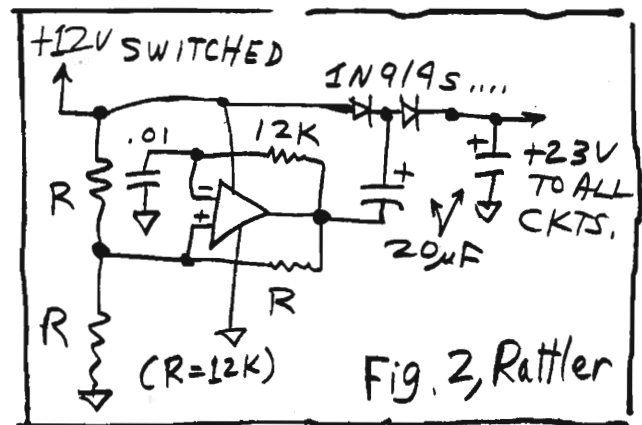 +12V SWITCHED
1N914s....
.01
12K
R
-
+
+
+
+23V
TO ALL
CKTS.
20µF
R
R
(R=12K)
Fig. 2, Rattler